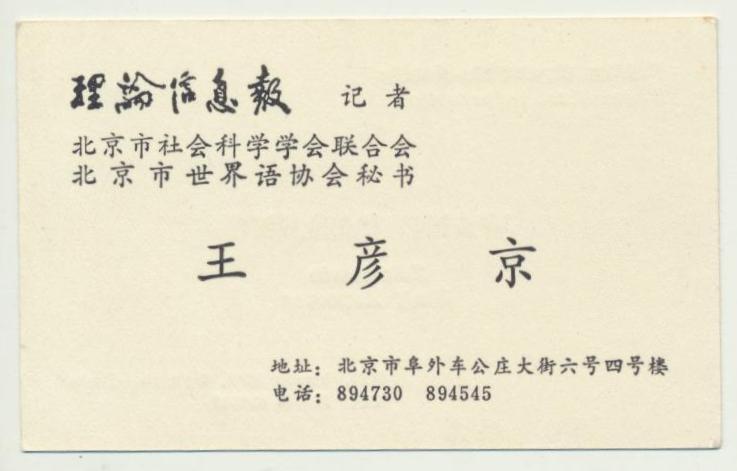 理論信息報 记者
北京市社会科学学会联合会
北京市世界语协会秘书
王彦京
地址：北京市阜外车公庄大街六号四号楼
电话：894730 894545